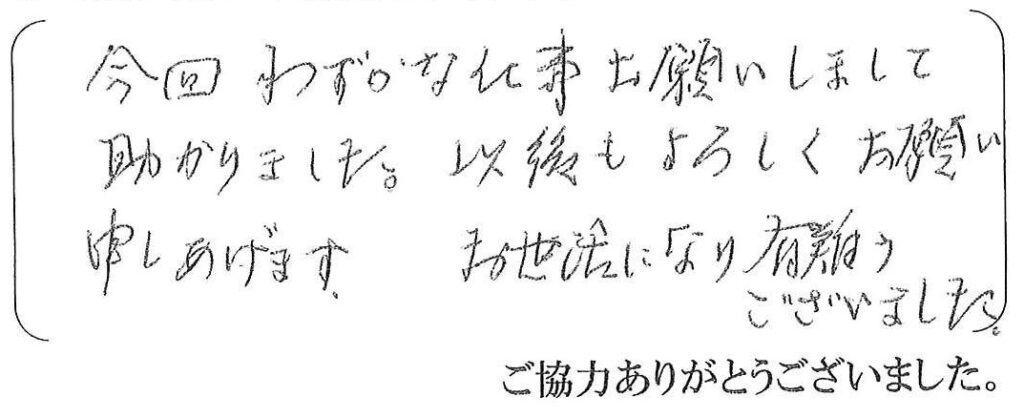 今回わずかな仕事お願いしまして
助かりました。以後もよろしくお願い
申しあげます。 お世話になり有難う
ございました。
ご協力ありがとうございました。